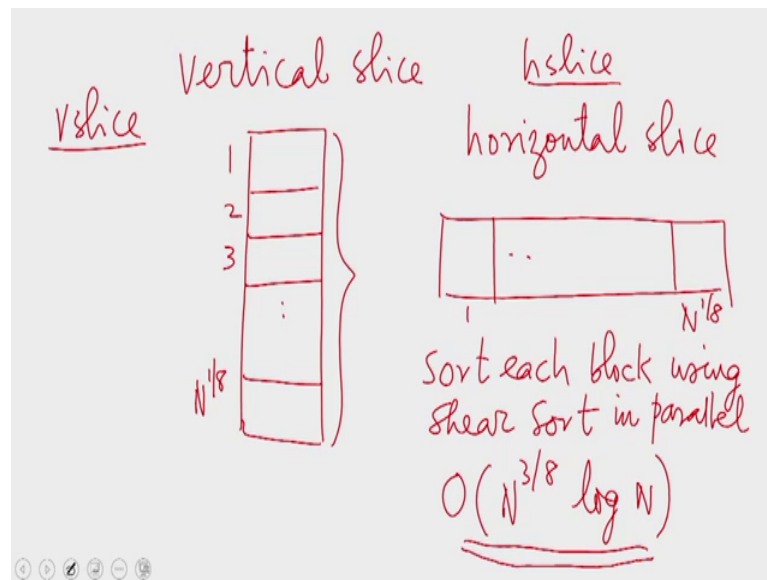 vertical slice
hslice
vslice
horizontal slice
1
2
3
:
N^{1/8}
..
1
N^{1/8}
Sort each block using
Shear Sort in parallel
O(N^{3/8} log N)